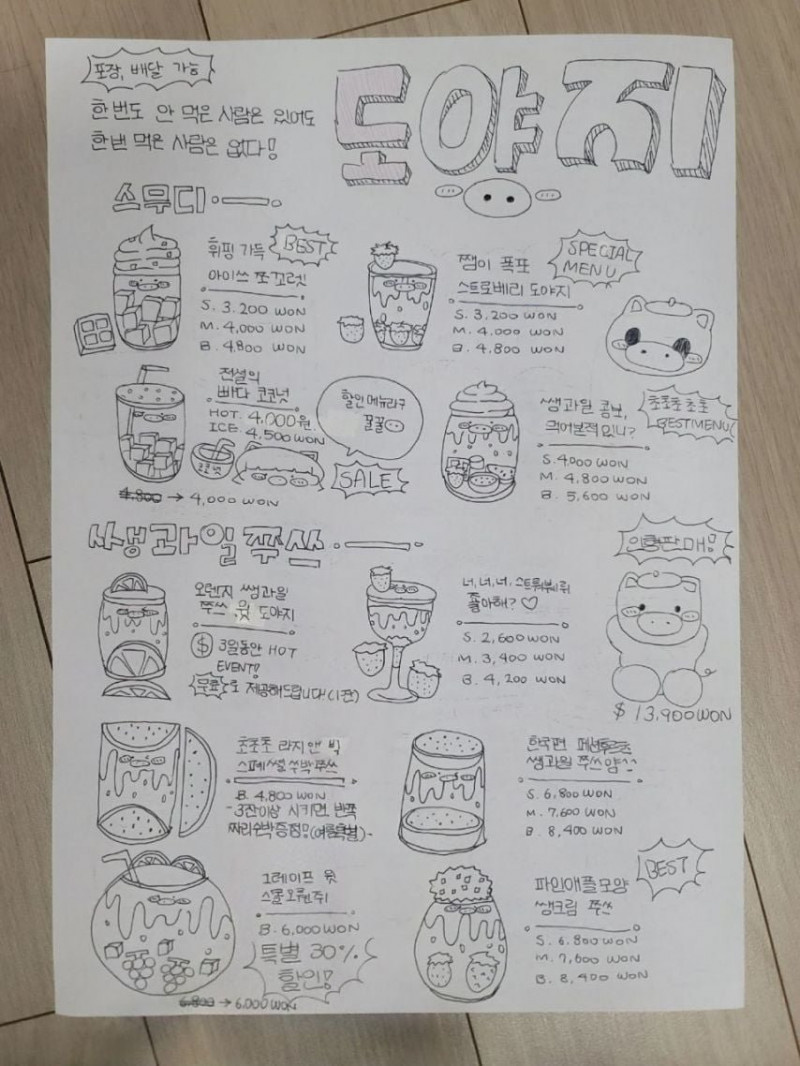 포장, 배달 가능
한번도 안 먹은 사람은 있어도
한번 먹은 사람은 없다!
도야지
스무디
휘핑 가득
BEST
아이쓰 쪼꼬렛
S. 3.200 WON
M. 4,000 WON
B. 4.800 WON
쨈이 폭포
SPECIAL
MENU
스트로베리 도야지
S. 3,200 WON
M. 4.000 WON
B. 4,800 WON
전설의
빠다 코코넛
HOT. 4,000원.
ICE. 4,500 WON
코코넛
4,800 → 4,000 WON
할인 메뉴라구
꿀꿀
SALE
쌩과일 콤보,
먹어본적있니?
초초초초초
BESTMENU
S. 4,000 WON
M. 4,800 WON
B. 5,600 WON
쌩과일쭈쓰
오렌지 쌩과일
쭈쓰 윗 도야지
$ 3일동안 HOT
EVENT!
무료로 제공해드립니다(1잔)
너, 너, 너, 스트뤄붸리
좋아해? ♡
S. 2,600 WON
M. 3,400 WON
B. 4,200 WON
인형판매!
$ 13,900 WON
초초초 라지 앤 빅
스페쎨 쑤박쭈쓰
B. 4,800 WON
- 3잔이상 시키면 반쪽
짜리수박증정!(여름특별)-
한국편
쌩과일 쭈쓰얌^^
S. 6,800 WON
M. 7,600 WON
B. 8,400 WON
그레이프 윗
스몰오뤤쥐
B. 6,000 WON
특별 30%
할인!
6.800 → 6.000 WON
BEST
파인애플모양
쌩크림 쭈쓰
S. 6.800 WON
M. 7,600 WON
B. 8,400 WON